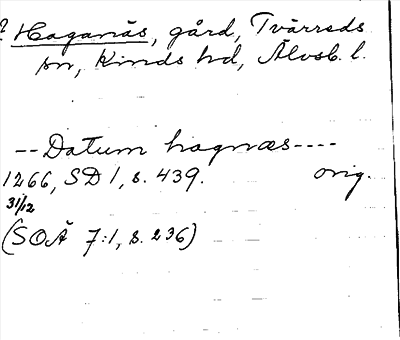 ? Haganäs, gård, Tvärreds
sn, Kinds hd, Älvsb. l.
-- Datum hagnæs ----
1266, SD 1, s. 439. orig.
31/12
(SOÄ 7:1, s. 236)